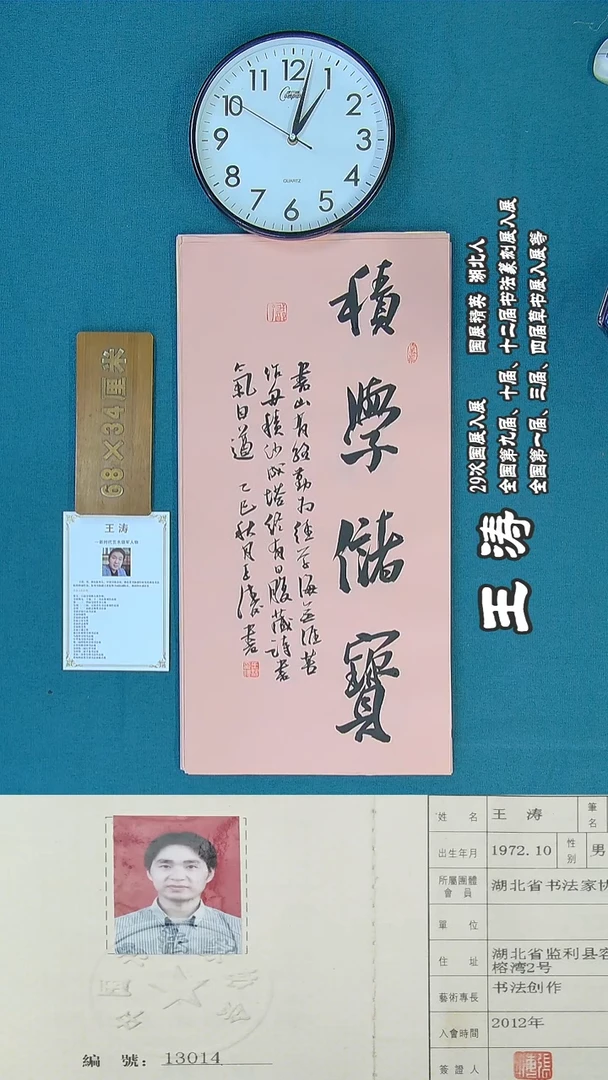 12
1
2
3
4
5
6
7
8
9
10
11
QUARTZ
積學儲寶
書山有路勤為徑學海無涯苦
作舟積沙成塔終有日腹藏詩書
氣自華 乙巳秋月王濤書
68×34厘米
王涛
29次国展入展 国展精英 湖北人
全国第九届、十届、十二届书法篆刻展入展
全国第一届、三届、四届草书展入展等
王涛
姓名 王涛 筆名
出生年月 1972.10 性别 男
所屬團體會員 湖北省书法家协
單位
住址 湖北省监利县容
榕湾2号
藝術專長 书法创作
入會時間 2012年
簽證人
編號：13014